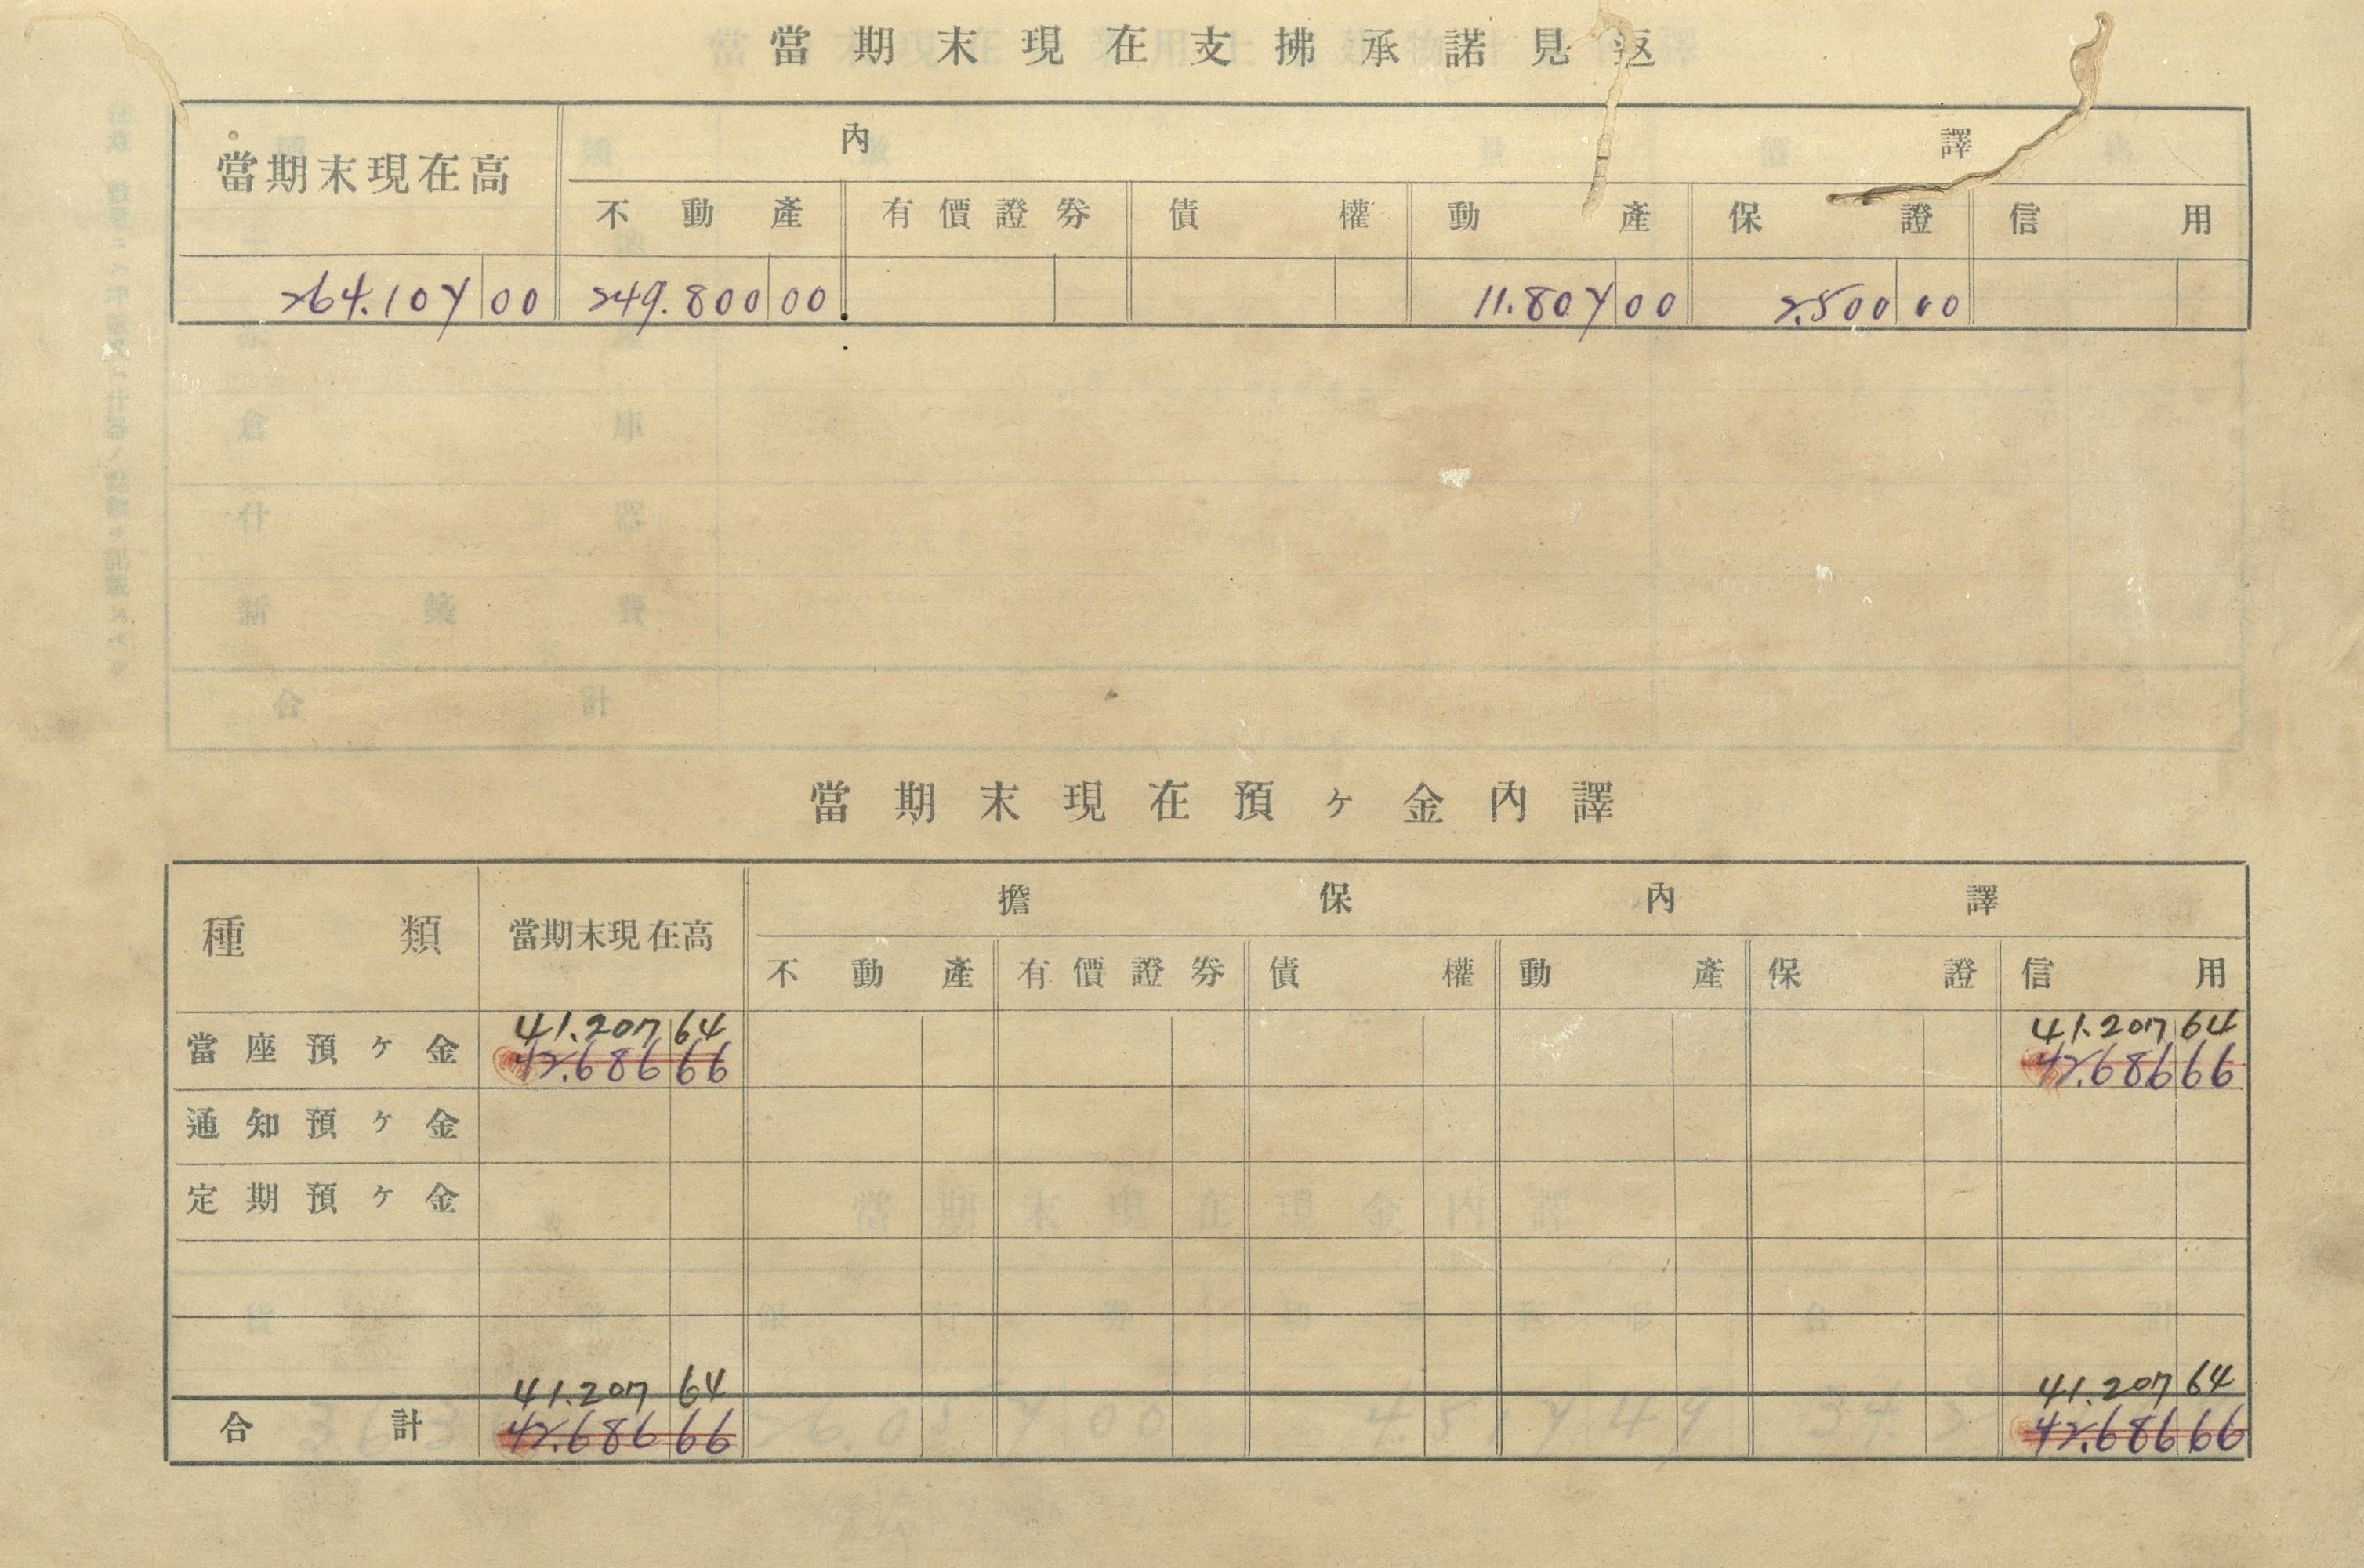 當期末現在支拂承諾見返
當期末現在高 內譯
不動產 有價證券 債權 動產 保證 信用
264.107 00 249.800 00 11.807 00 2.500 00
當期末現在預ヶ金內譯
種類 當期末現在高 擔保內譯
不動產 有價證券 債權 動產 保證 信用
41.207 64 41.207 64
當座預ヶ金 42.686 66 42.686 66
通知預ヶ金
定期預ヶ金
41.207 64 41.207 64
合計 42.686 66 42.686 66